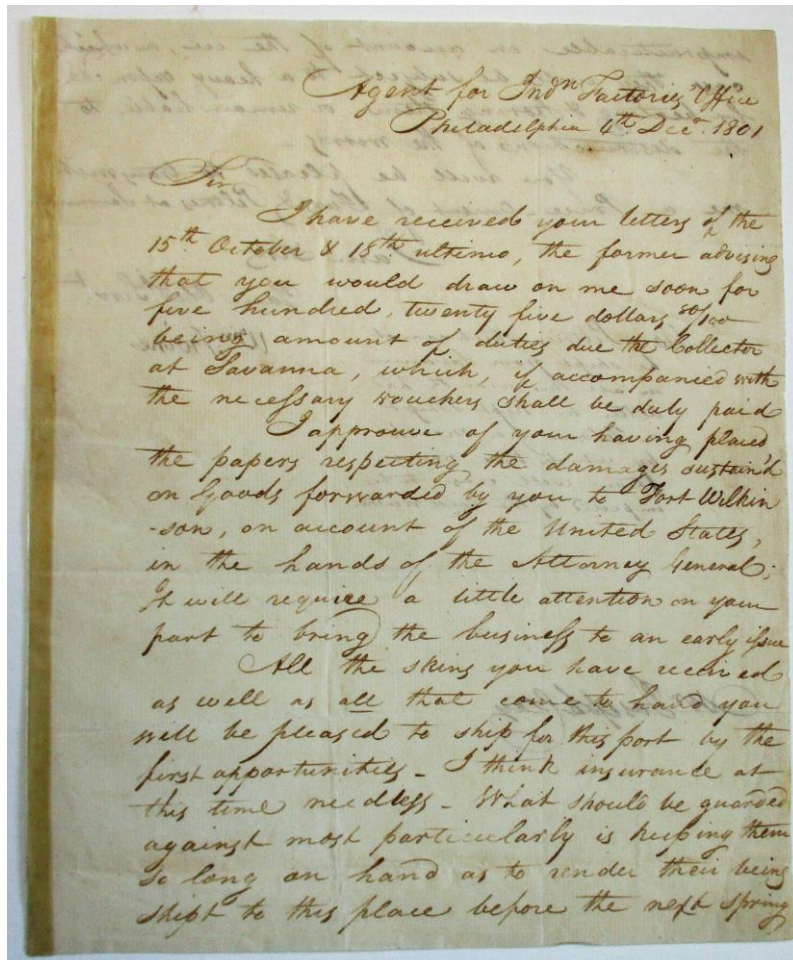 Agent for Indn Factories Office
Philadelphia 4th Decr. 1801
Sir
I have received your letters of the
15th October & 18th ultimo, the former advising
that you would draw on me soon for
five hundred, twenty five dollars 50/100
being amount of duties due the Collector
at Savanna, which, if accompanied with
the necessary vouchers shall be duly paid
I approuve of your having placed
the papers respecting the damages sustain'd
on Goods forwarded by you to Fort Wilkin
-son, on account of the United States,
in the hands of the Attorney General;
It will require a little attention on your
part to bring the business to an early issue
All the skins you have received
as well as all that come to hand you
will be pleased to ship for this port by the
first opportunities - I think insurance at
this time needless - What should be guarded
against most particularly is keeping them
so long on hand as to render their being
shipt to this place before the next spring